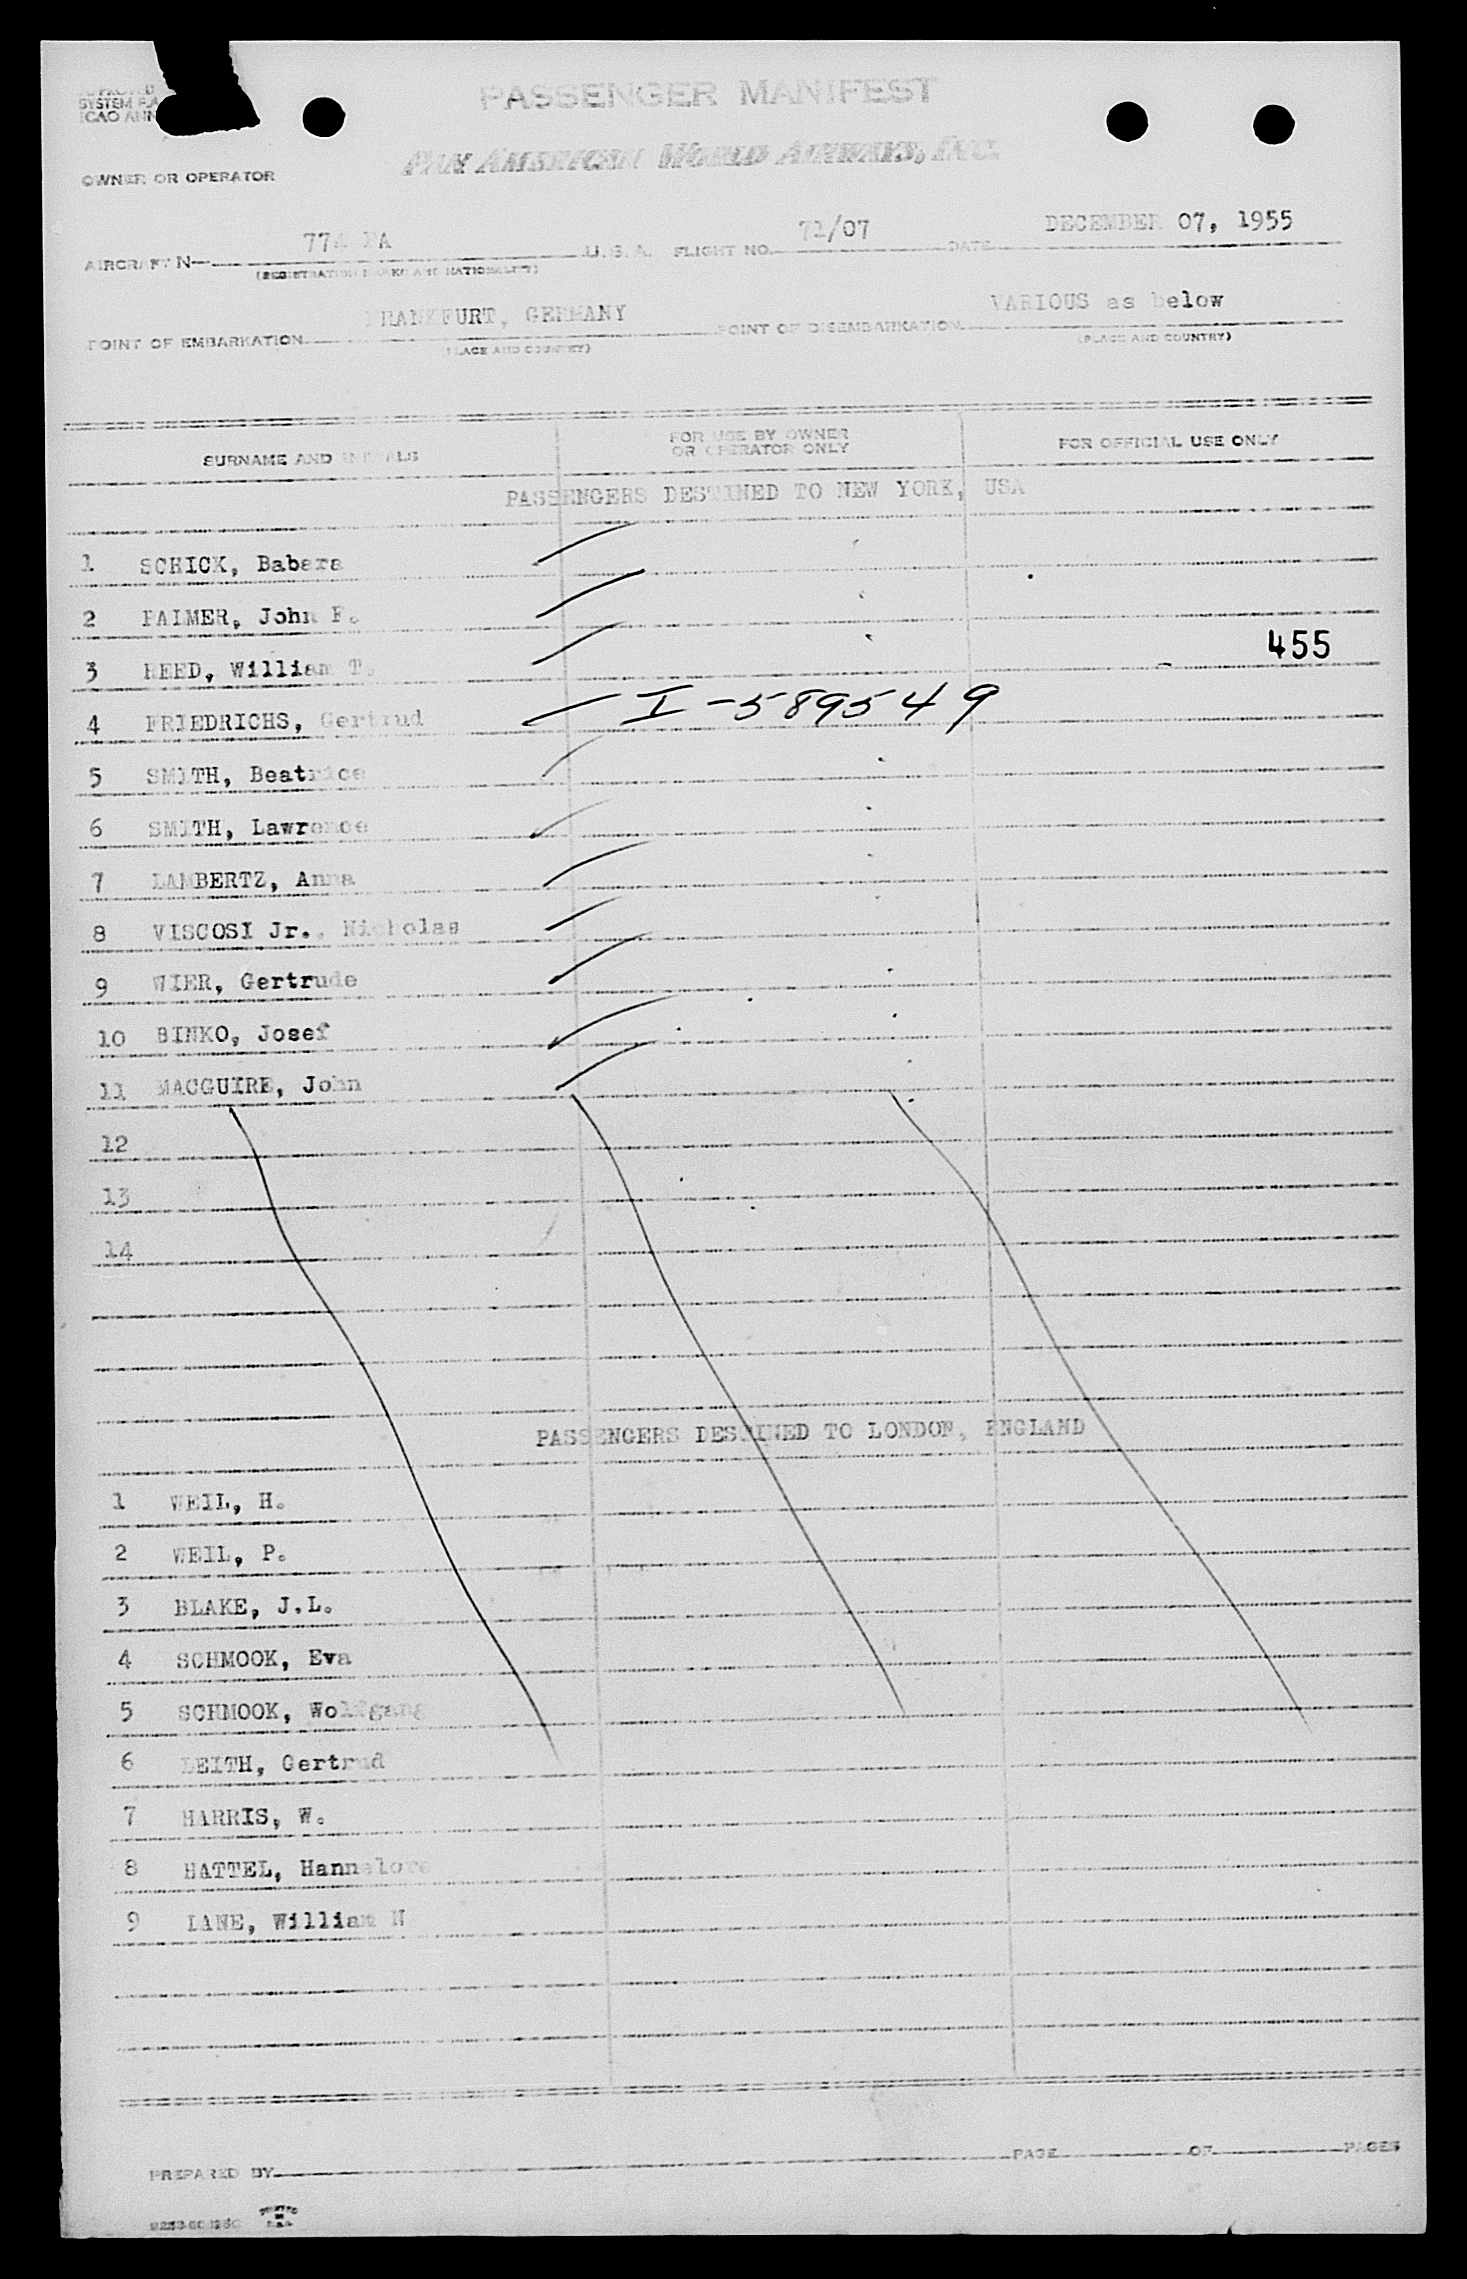 SYSTEM
ICAO ANN
PASSENGER MANIFEST
PAN AMERICAN WORLD AIRWAYS, INC.
OWNER OR OPERATOR
AIRCRAFT N— 774 PA U.S.A. FLIGHT NO. 71/07 DATE DECEMBER 07, 1955
(REGISTRATION MARKS AND NATIONALITY)
POINT OF EMBARKATION FRANKFURT, GERMANY POINT OF DISEMBARKATION VARIOUS as below
(PLACE AND COUNTRY) (PLACE AND COUNTRY)
SURNAME AND INITIALS FOR USE BY OWNER OR OPERATOR ONLY FOR OFFICIAL USE ONLY
PASSENGERS DESTINED TO NEW YORK, USA
1 SCHICK, Babera
2 PALMER, John F.
3 REED, William T. 455
4 FRIEDRICHS, Gertrud I-589549
5 SMITH, Beatrice
6 SMITH, Lawrence
7 LAMBERTZ, Anna
8 VISCOSI Jr., Nicholas
9 WIER, Gertrude
10 BINKO, Josef
11 MACGUIRE, John
12
13
14
PASSENGERS DESTINED TO LONDON, ENGLAND
1 WEIL, H.
2 WEIL, P.
3 BLAKE, J.L.
4 SCHMOOK, Eva
5 SCHMOOK, Wolfgang
6 LEITH, Gertrud
7 HARRIS, W.
8 HATTEL, Hannelore
9 LANE, William N
PREPARED BY PAGE OF PAGES
PRINTED IN U.S.A.